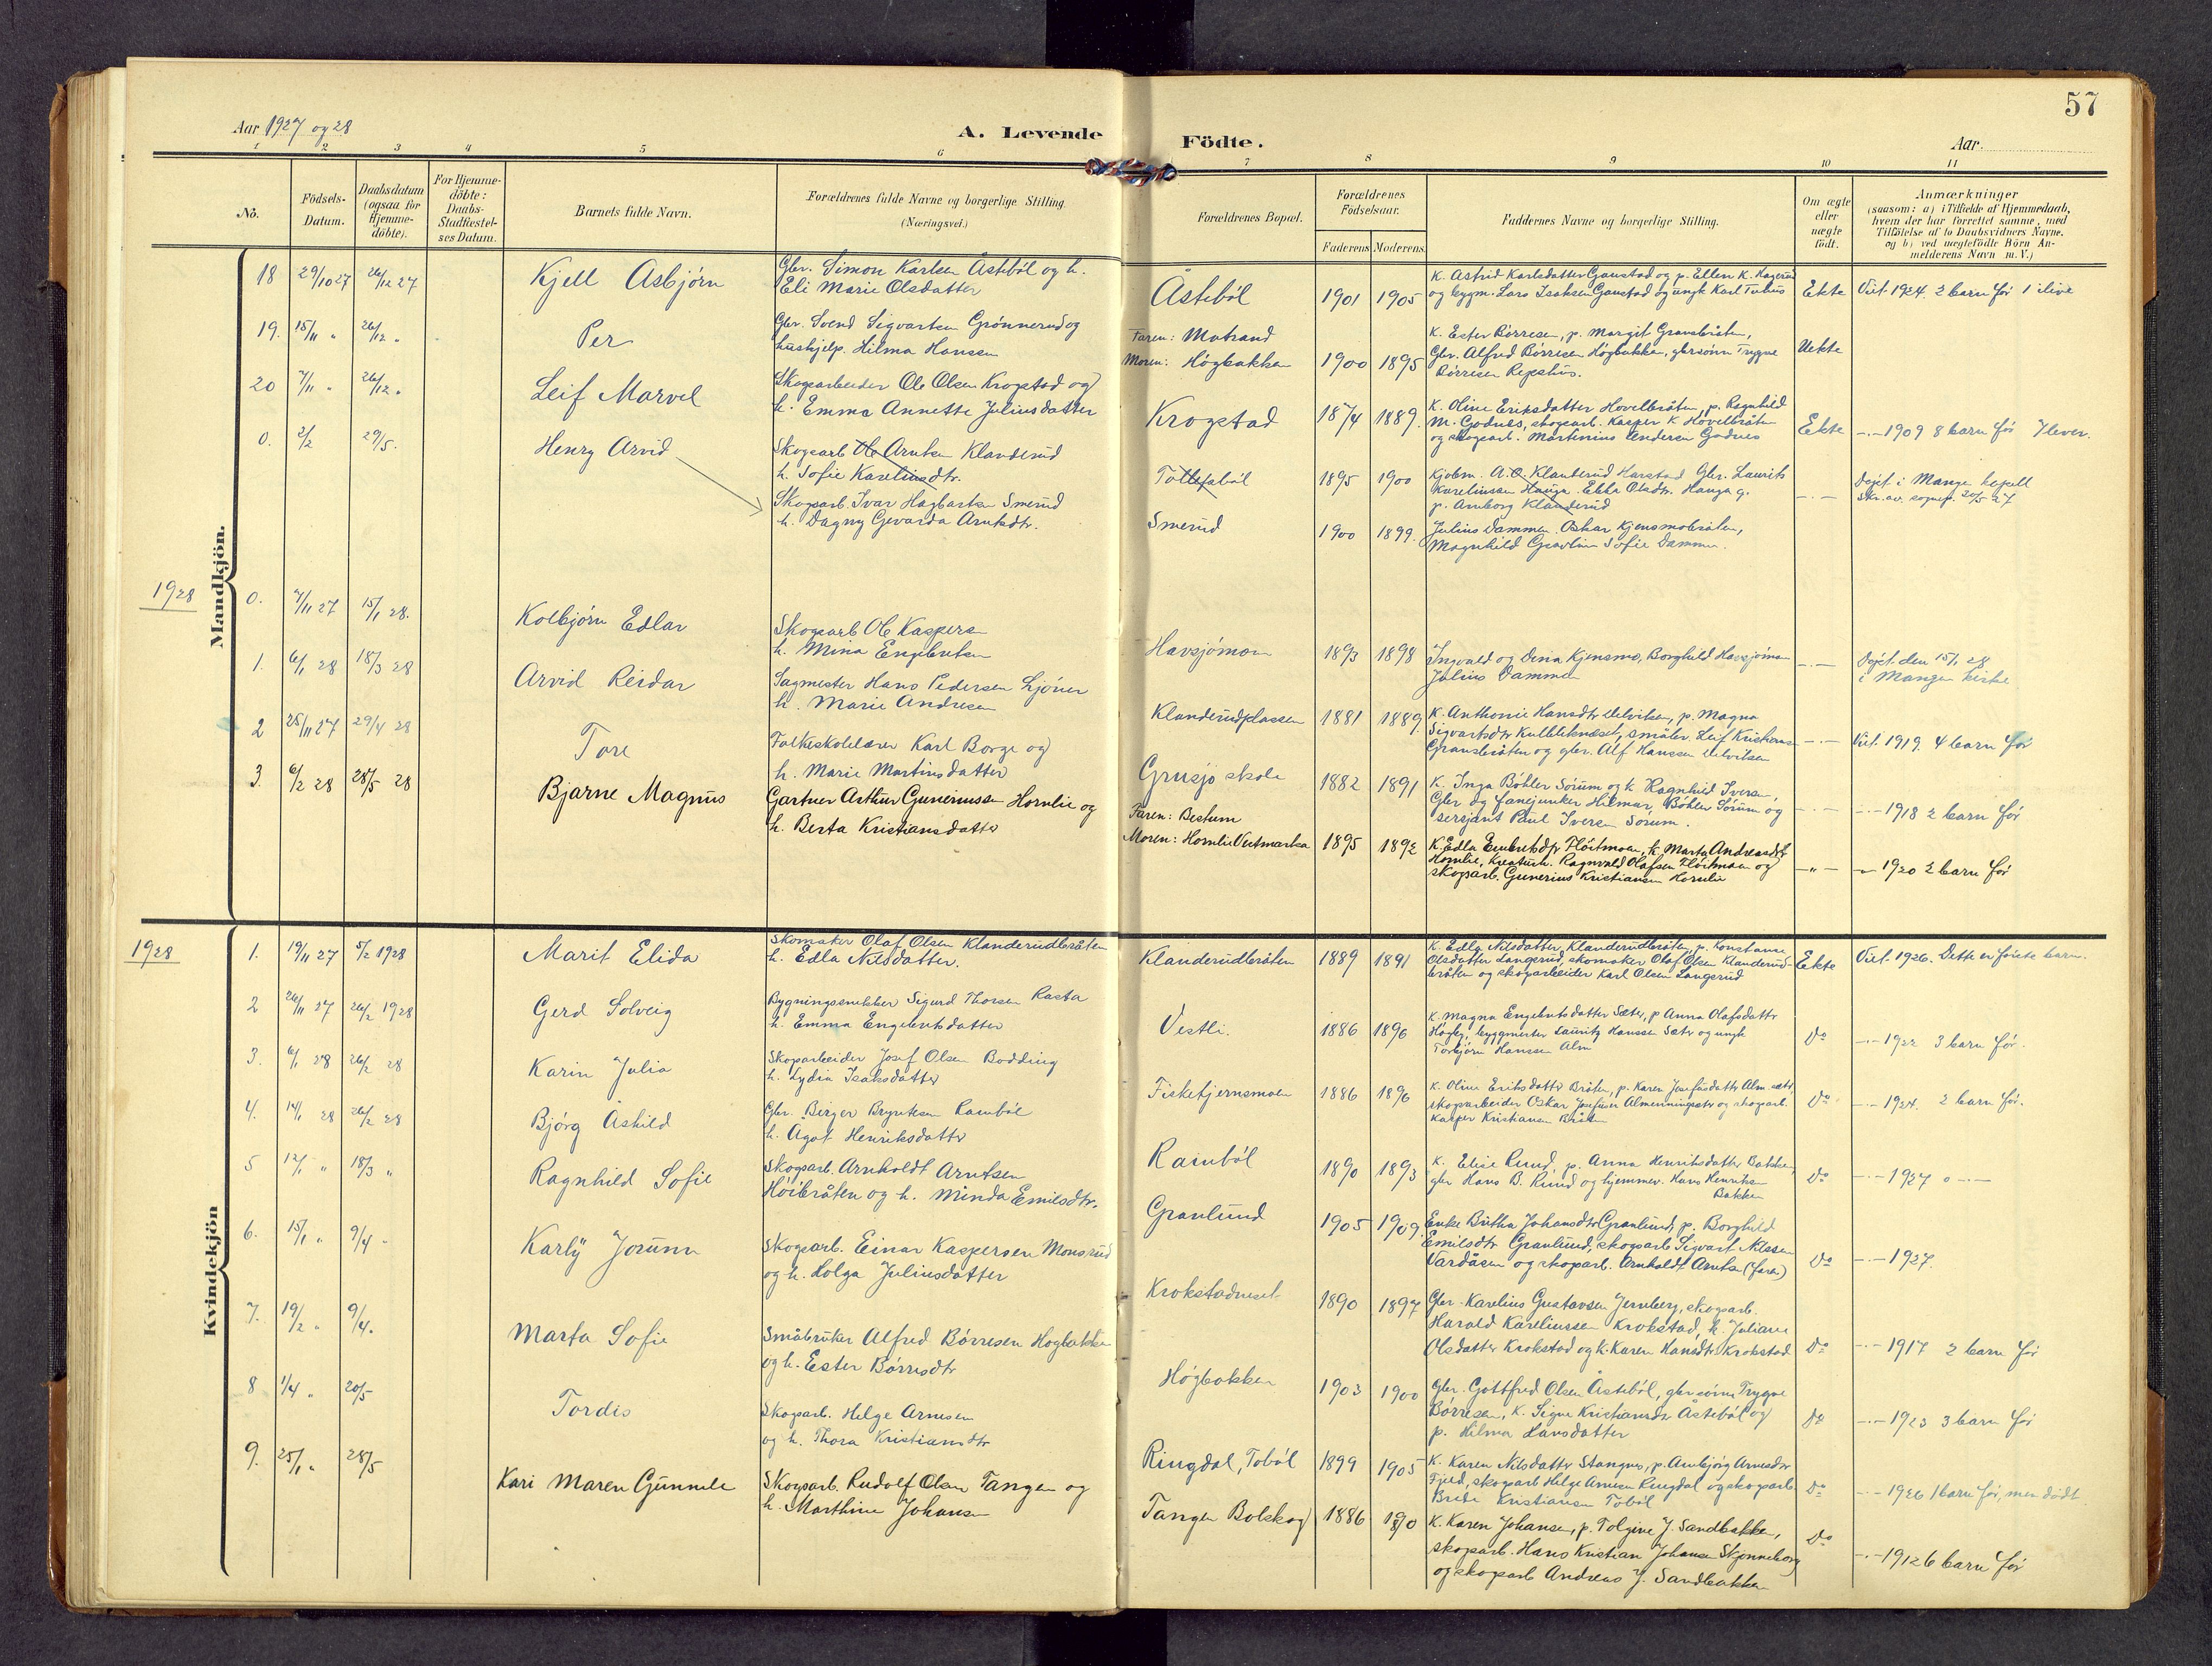 57
Aar 1927 og 28
A. Levende Födte.
Aar
1 2 3 4 5 6 7 8 9 10 11
No.
Födsels-
Datum.
Daabsdatum
(ogsaa for
Hjemme-
döbte).
For Hjemme-
döbte:
Daabs-
Stadfæstel-
ses Datum.
Barnets fulde Navn.
Forældrenes fulde Navne og borgerlige Stilling.
(Næringsvei.)
Forældrenes Bopæl.
Forældrenes
Födselsaar.
Faderens Moderens.
Faddernes Navne og borgerlige Stilling.
Om ægte
eller
uægte
födt.
Anmærkninger
(saasom: a) i Tilfælde af Hjemmedaab,
hvem der har forrettet samme, med
Tilföielse af to Daabsvidners Navne.
og b) ved uægtefödte Börn An-
melderens Navn m. V.)
Mandkjön.
18 29/10 27 26/12 27 Kjell Asbjörn
Gbr. Simon Karlsen Åstebøl og h.
Eli Marie Olsdatter
Åstebøl 1901 1905
K. Astrid Karlsdatter Gaustad og p. Ellen K. Hagerud
og bygm. Lars Isaksen Gaustad og ungk Karl
Ekte Viet 1924. 2 barn før 1 ilive
19. 15/11 " 26/12 " Per
Gbr. Svend Sigvartsen Grønnerud og
hushjelp. Hilma Hansen
Faren: Matrand
Moren: Högbakken 1900 1895
K. Ester Børresen, p. Margit Gransbråten,
Gbr. Alfred Børresen Högbakken, gbrsønn Trygve
Børresen Repshus.
Uekte
20 7/11 " 26/12 " Leif Marvel
Skogsarbeider Ole Olsen Krogstad og
h. Emma Annette Juliusdatter
Krogstad 1874 1889.
K. Oline Eriksdatter Hovelbråten, p. Ragnhild
M. Godnes, skogsarb. Kasper K. Hovelbråten
og skogsarb. Martinius Endersen Godnes
Ekte -"- 1909 8 barn før 7 lever.
0. 2/2 29/5. Henry Arvid
Skogsarb Ole Arntsen Klanderud
h. Sofie Kareliusdtr.
Tollefsbøl 1895 1900
Kjøbm. A. O. Klanderud Harstad Gbr. Laurits
Kareliussen Hauga. Ebba Olsdtr. Hauga g.
p. Arnborg Klanderud
-"- Døpt i Mangen kapell
Skr. av sognepr. 20/5 27
Skogsarb. Ivar Hagbartsen Smerud
h. Dagny Gevarda Arntsdtr.
Smerud 1900 1899.
Julius Dammen. Oskar Kjensmobråten,
Magnhild Gravlien Sofie Dammen.
1928
0. 7/11 27 15/1 28. Kolbjørn Edlar
Skogsarb Ole Kaspersen
h. Mina Engebretsen
Havsjömoen 1893 1898
Ingvald og Dina Kjensmo, Borghild Havsjömoen
Julius Dammen
-"- Døpt den 15/1 28
i Mangen kirke
1. 6/1 28 18/3 28 Arvid Reidar
Sagmester Hans Pedersen Ljöner
h. Marie Andresen
Klanderudplassen 1881 1889.
K. Anthonie Hansdtr Delviken, p. Magna
Sigvartsdtr Kulbleknæset, småbr. Leif Kristiansen
Gransbråten og gbr. Alf Hanssen Delviken
-"- Viet 1919. 4 barn før
2 25/11 27 29/4 28 Tore
Folkeskolelærer Karl Borge og
h. Marie Martinsdatter
Grusjø skole 1882 1891
K. Inga Bøhler Sørum og k Ragnhild Iversen,
Gbr og fanejunker Hilmar Bøhler Sørum og
sersjant Paul Iversen Sørum.
-"- -"- 1918 2 barn før
3. 6/2 28 28/5 28 Bjarne Magnus
Gartner Arthur Gunerussen Hornlie og
h. Berta Kristiansdatter
Faren: Bestum
Moren: Hornlie Vestmarka 1895 1892
K. Edla Embretsdtr Flöitmoen, k. Marta Andreasdtr
Hornlie, Kreaturh. Ragnvald Olafsen Flöitmoen og
skogsarb. Gunerius Kristiansen Hornlie
-"- -"- 1920 2 barn før
1928
Kvindekjön
1. 19/11 27 5/2 1928 Marit Elida
Skomaker Olaf Olsen Klanderudbråten
h. Edla Nilsdatter.
Klanderudbråten 1889 1891
K. Edla Nilsdatter, Klanderudbråten, p. Konstanse
Olsdatter Langerud, skomaker Olaf Olsen Klanderud-
bråten og skogarbeider Karl Olsen Langerud
Ekte Viet. 1926. Dette er første barn.
2 26/11 27 26/2 1928 Gerd Solveig
Bygningssnekker Sigurd Thorsen Rasta
h. Emma Engebretsdatter
Vestli. 1886 1896
K. Magna Engebretsdatter Sæter, p Anna Olafsdattr
Høgby, byggmester Lauritz Hanssen Sætr og ungk
Torbjørn Hanssen Alm
Do -"- 1922 3 barn før.
3. 6/1 28 26/2 28 Karin Julia
Skogsarbeider Josef Olsen Bodding
h. Lydia Isaksdatter
Fisketjernsmoen 1886 1896
K. Oline Eriksdattr Bråten, p. Karen Josefusdattr Alm. sætr
skogsarbeider Oskar Josefusen Almenningsetr og skogarb.
Kasper Kristiansen Bråten
Do -"- 1924. 2 barn før.
4. 14/1 28 26/2 28 Bjørg Åshild
Gbr. Birger Bryntesen Rambøl
h. Agot Henriksdattr
Rambøl 1890 1893
K. Elise Rund, p. Anna Henriksdattr Bakken,
gbr Hans B. Rund og hjemmev. Hans Henriksen
Bakken
Do -"- 1927 0 -"-
5 12/1 " 18/3 " Ragnhild Sofie
Skogsarb. Arnholdt Arntsen
Höibråten og h. Minda Emilsdtr.
Granlund 1905 1909.
Enke Birtha Johansdtr Granlund, p. Borghild
Emilsdtr Granlund, skogsarb Sigvart Nilssen
Vardåsen og skogarb. Arnholdt Arntsen (faren)
Do -"- 1927.
6. 15/1 " 9/4 - Karly Jorunn
Skogsarb. Einar Kaspersen Monsrud
og h. Holga Juliusdatter
Krokstadneset 1890 1897
Gbr. Karelius Gustavsen Jernberg, skogsarb.
Harald Kareliussen Krokstad, k. Juliane
Olsdatter Krokstad og k. Karen Hansdtr. Krokstad
Do -"- 1917 2 barn før
7. 19/2 " 9/4. Marta Sofie
Småbruker Alfred Børresen Høgbakken
og h. Ester Børresdtr
Högbakken 1903 1900
Gbr. Gottfred Olsen Åstebøl, gbrsønn Trygve
Børresen, K. Signe Kristiansdtr Åstebøl og
p. Hilma Larsdatter
Do -"- 1923 3 barn før
8 1/4 " 20/5 Tordis
Skogsarb. Helge Arnesen
og h. Thora Kristiansdtr
Ringdal, Tobøl 1899 1905
K. Karen Nilsdatter Stangnes, p. Arnbjörg Arnesdtr
Fjeld, skogsarb Helge Arnesen Ringdal og skogsarb.
Brede Kristiansen Tobøl
Do -"- 1926 1 barn før, men dødt.
9. 25/1 " 28/5 Kari Maren Gunnele
Skogsarb. Rudolf Olsen Tangen og
h. Marthine Johansen
Tangen Bolskog 1886 1890
K. Karen Johansen, p. Tolgine J. Sandbakken,
skogsarb. Hans Kristian Johansen Skjønneborg
og skogsarb Andreas J. Sandbakken
Do -"- 1912 6 barn før